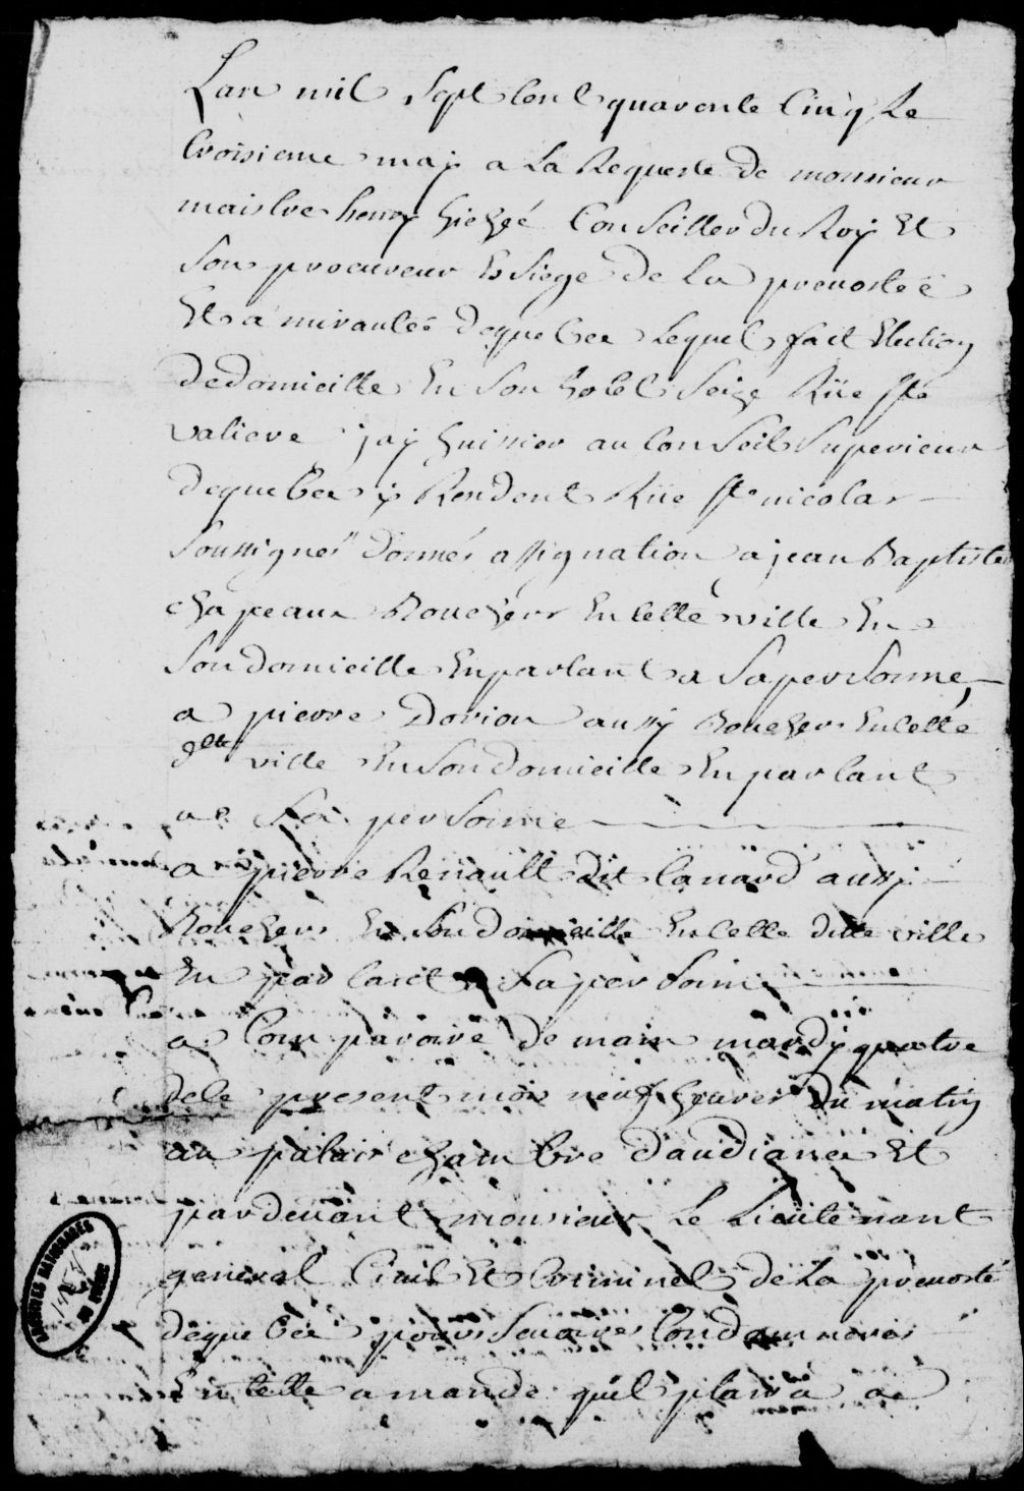 Lan mil sept cent quarente cinq Le
troisieme may a La Requeste de monsieur
maistre henry hiché Conseiller du Roy Et
son procureur Es siege de La prevostée
Et amirautée de quebec Lequel fait Election
de domicille En son hotel seize Rüe ste
valiere jay huissier au Conseil superieur
de quebec y Resident Rüe st nicolas
soussignes donnés assignation a jean Baptiste
chapeaux Boucher En cette ville En
son domicille En parlant a sa personne,
a pierre Dorion aussy Boucher En cette
dtte ville En son domicille En parlant
a sa personne
a pierre Renault dit Canard aussy
Boucher En son domicille En cette ditte ville
En parlant a sa personne
a Comparoire demain mardy quatre
de le present mois neuf heures du matin
au palais chambre daudiance Et
pardevant monsieur Le Lieutenant
general Civil Et Criminel de La prevosté
de quebec pour se voire Condamnerés
En telle amande quil plaira a
ARCHIVES NATIONALES